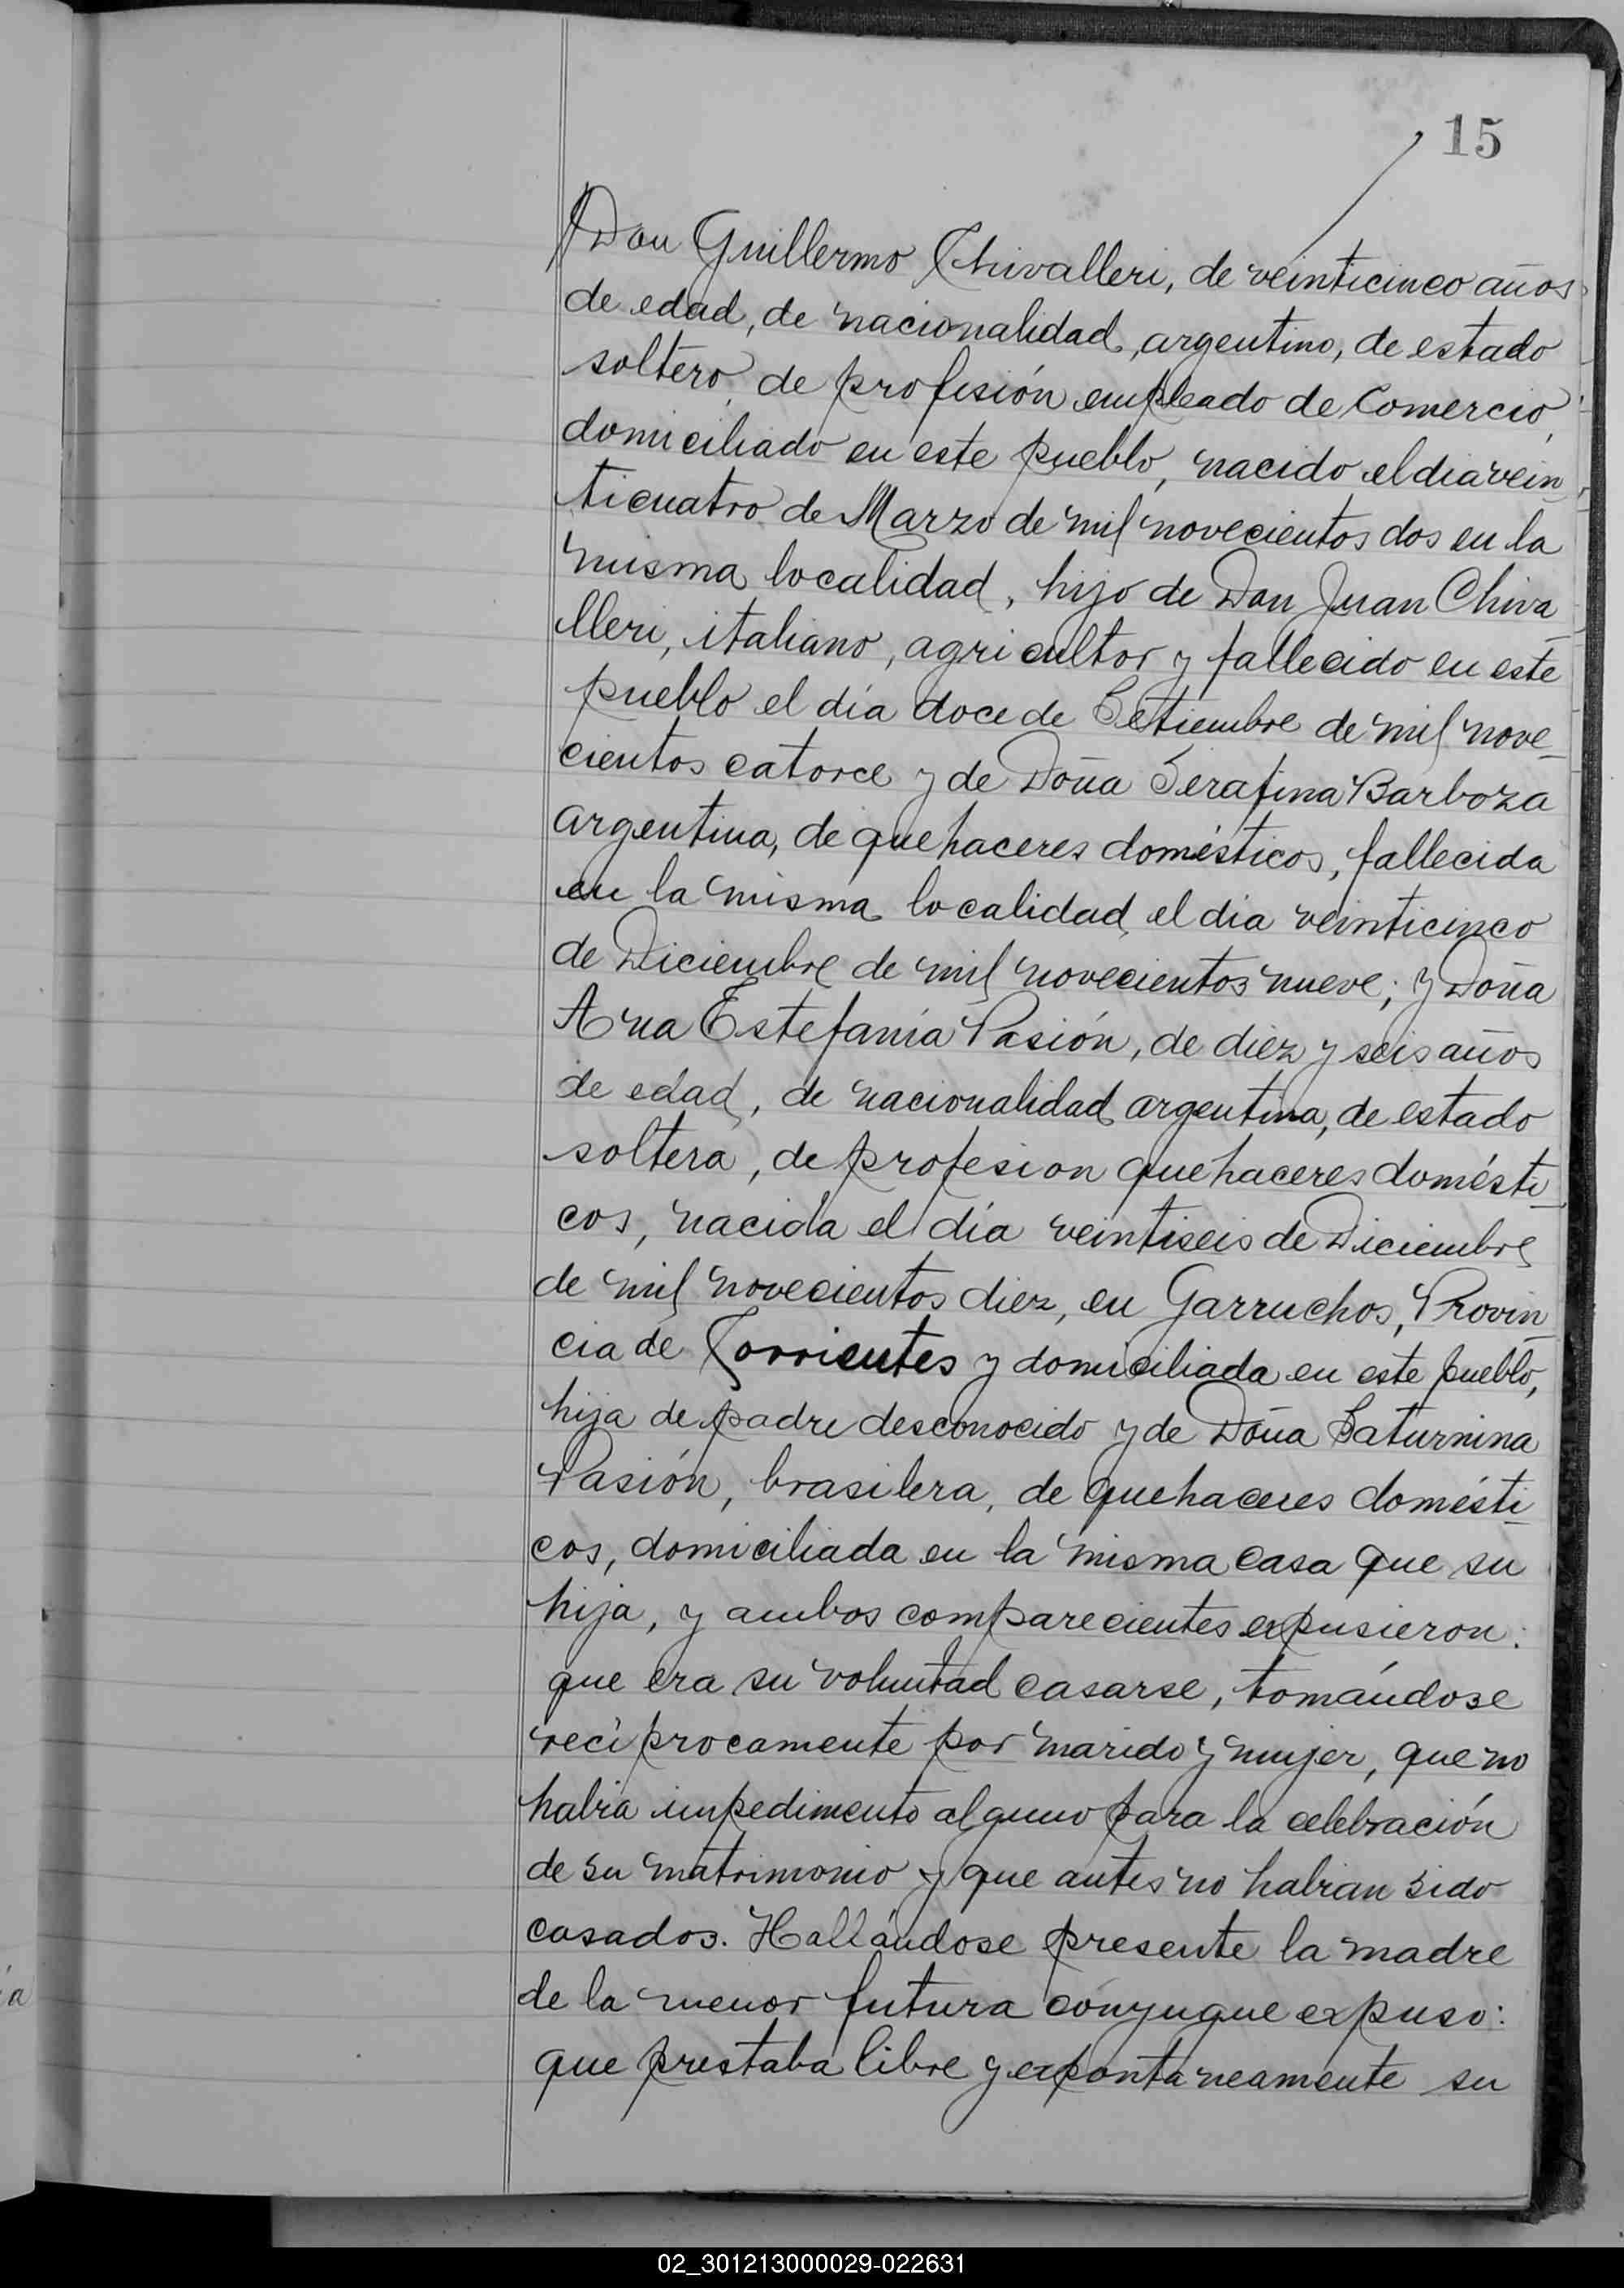 15
Don Guillermo Chivalleri, de veinticinco años
de edad, de nacionalidad argentino, de estado
soltero, de profesión empleado de Comercio,
domiciliado en este pueblo, nacido el dia vein
ticuatro de Marzo de mil novecientos dos en la
misma localidad, hijo de Don Juan Chiva
lleri, italiano, agricultor y fallecido en este
pueblo el día doce de Setiembre de mil nove
cientos catorce y de Doña Serafina Barboza
argentina, de quehaceres domésticos, fallecida
en la misma localidad el dia veinticinco
de Diciembre de mil novecientos nueve; y Doña
Ana Estefanía Pasión, de diez y seis años
de edad, de nacionalidad argentina, de estado
soltera, de profesion quehaceres domésti
cos, nacida el día veintiseis de Diciembre
de mil novecientos diez, en Garruchos, Provin
cia de Corrientes y domiciliada en este pueblo,
hija de padre desconocido y de Doña Saturnina
Pasión, brasilera, de quehaceres domésti
cos, domiciliada en la misma casa que su
hija, y ambos comparecientes expusieron:
que era su voluntad casarse, tomándose
reciprocamente por marido y mujer, que no
habia impedimento alguno para la celebración
de su matrimonio y que antes no habian sido
casados. Hallándose presente la madre
de la menor futura cónyugue expuso:
que prestaba libre y expontaneamente su
ia
02_301213000029-022631